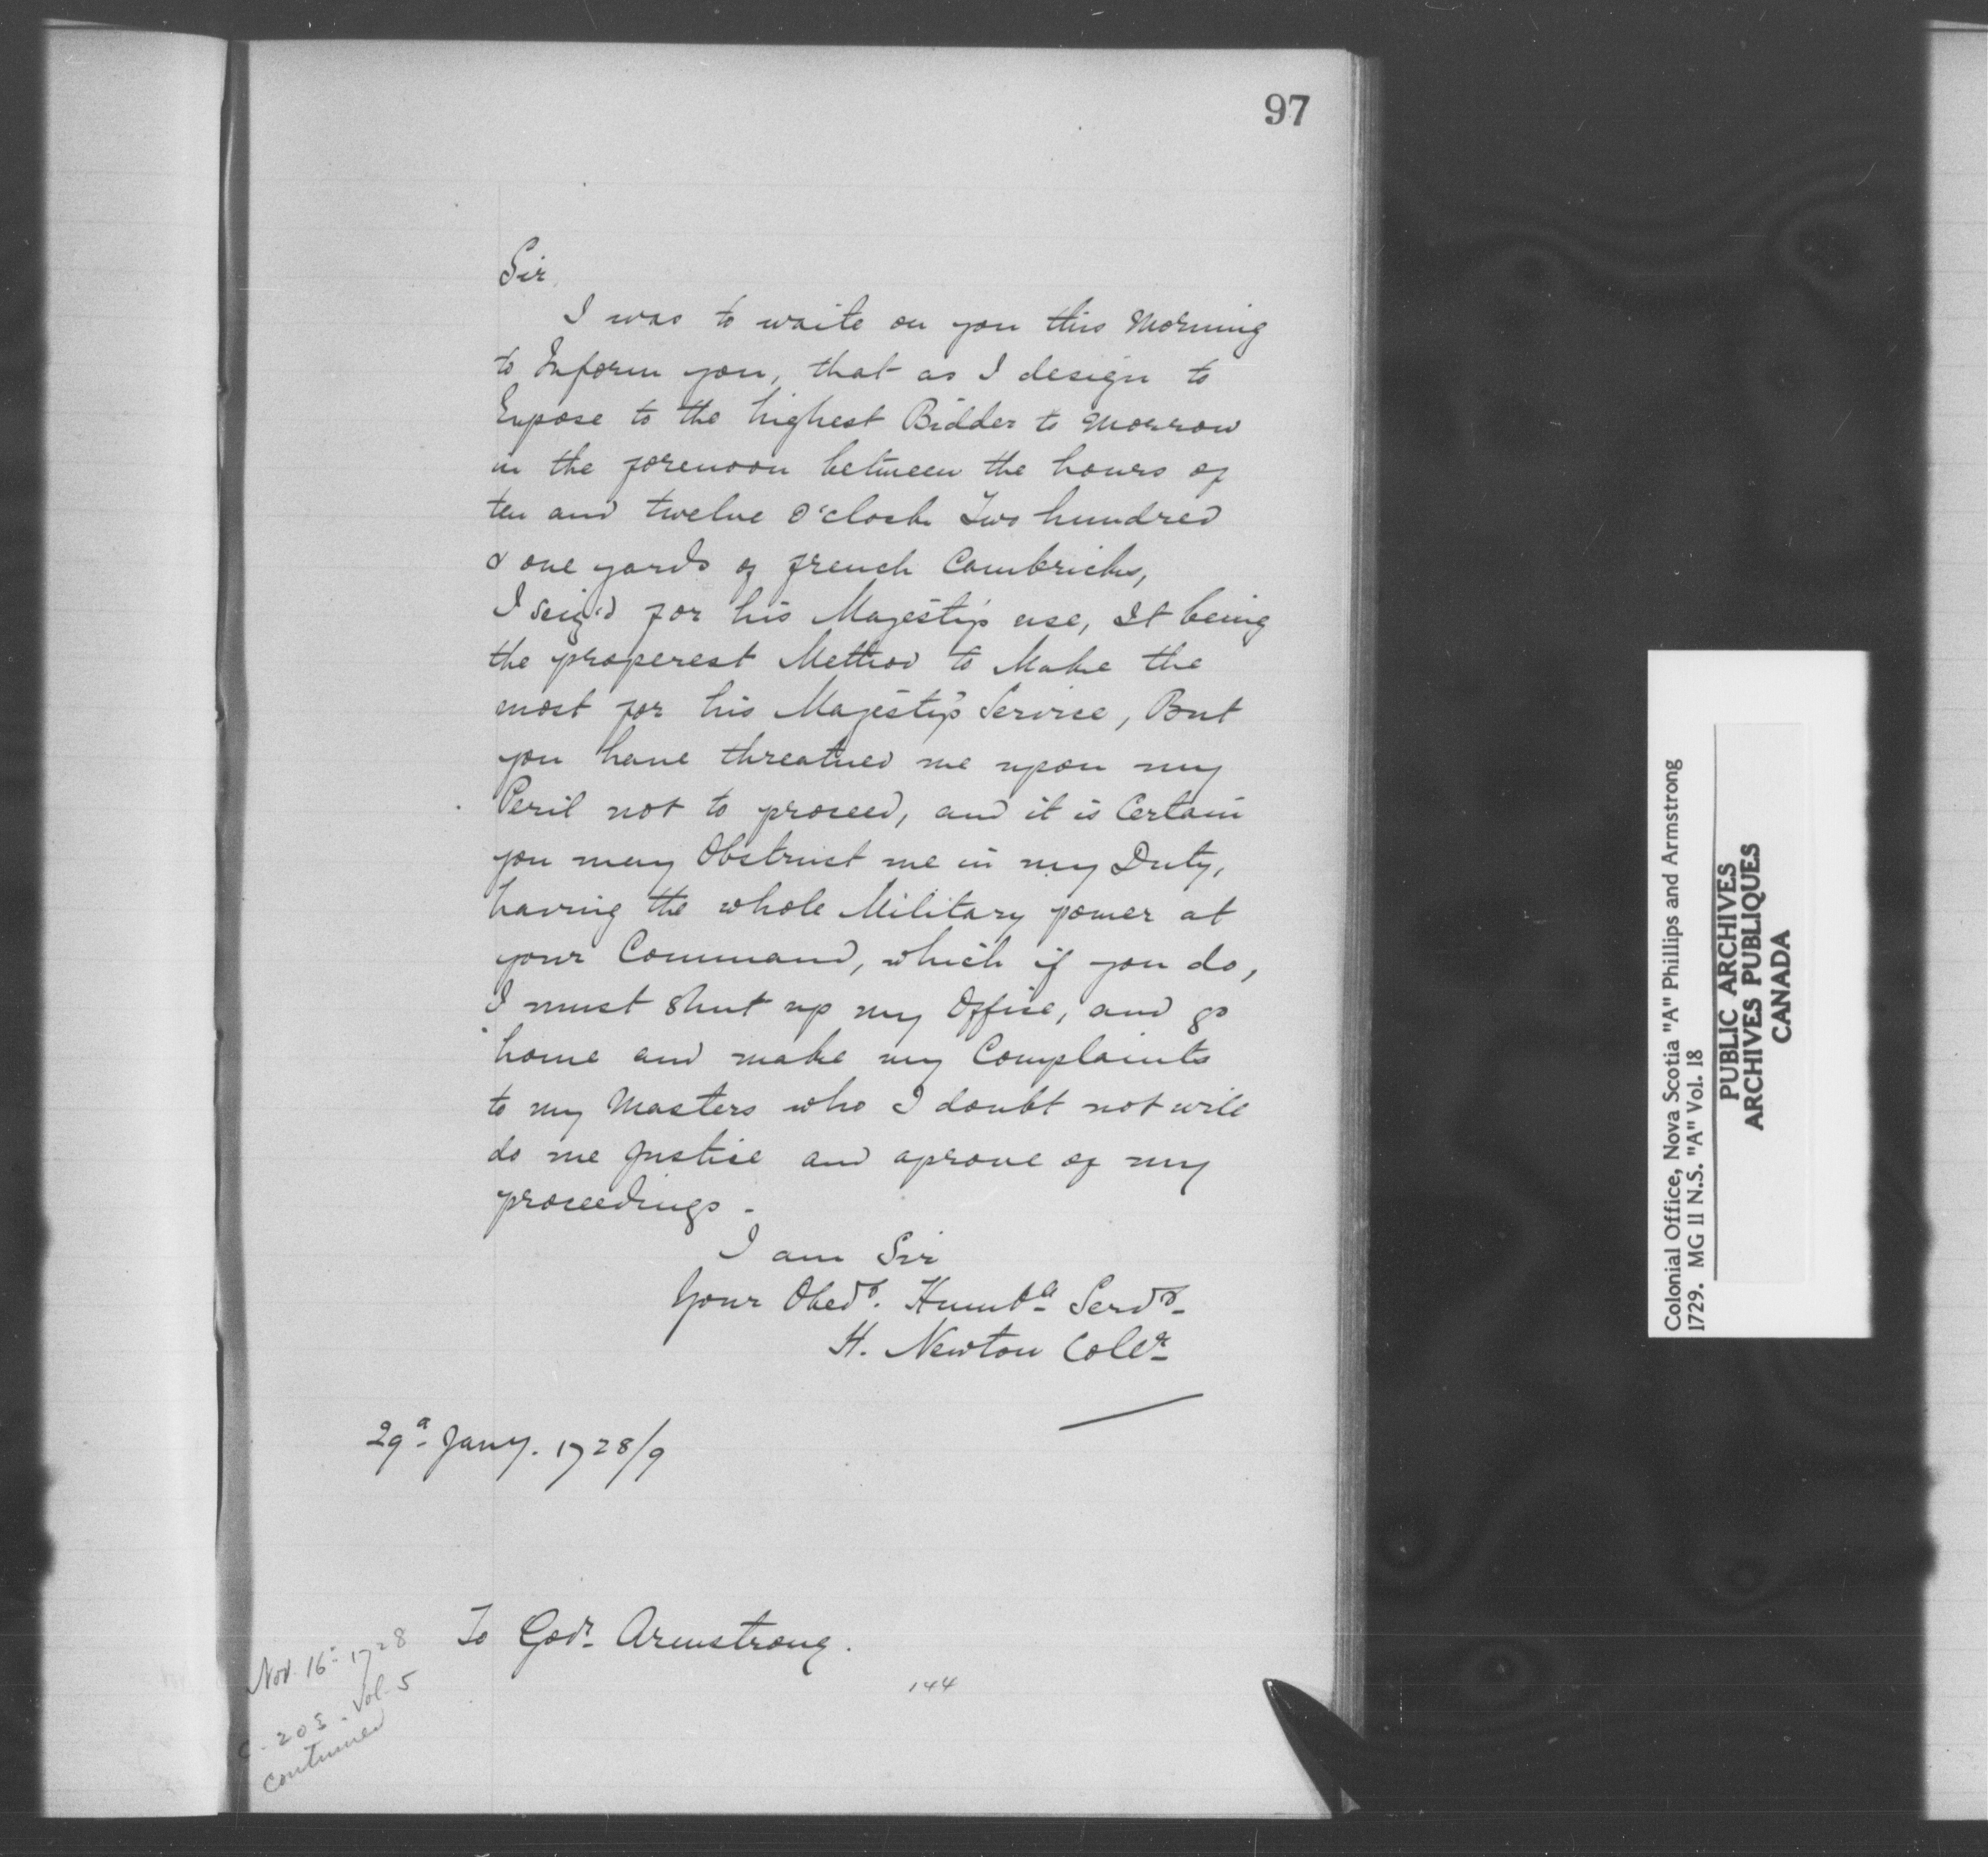 97
Sir,
I was to waite on you this Morning
to Inform you, that as I design to
Expose to the highest Bidder to Morrow
in the forenoon between the hours of
ten and twelve o'clock Two hundred
& one yards of french Cambricks,
I seiz'd for his Majesty's use, It being
the properest Method to Make the
most for his Majesty's Service, But
you have threatned me upon my
Peril not to proceed, and it is Certain
you may Obstruct me in my Duty,
having the whole Military power at
your Command, which if you do,
I must shut up my Office, and go
home and make my Complaints
to my Masters who I doubt not will
do me Justice and aprove of my
proceedings -
I am Sir
Your Obedt. Humble Servt.
H. Newton Colr.
29th Jany. 1728/9
To Govr. Armstrong.
144
Nov. 16th 1728
C. 203. Vol. 5
continued
Colonial Office, Nova Scotia "A" Phillips and Armstrong
1729. MG 11 N.S. "A" Vol. 18
PUBLIC ARCHIVES
ARCHIVES PUBLIQUES
CANADA